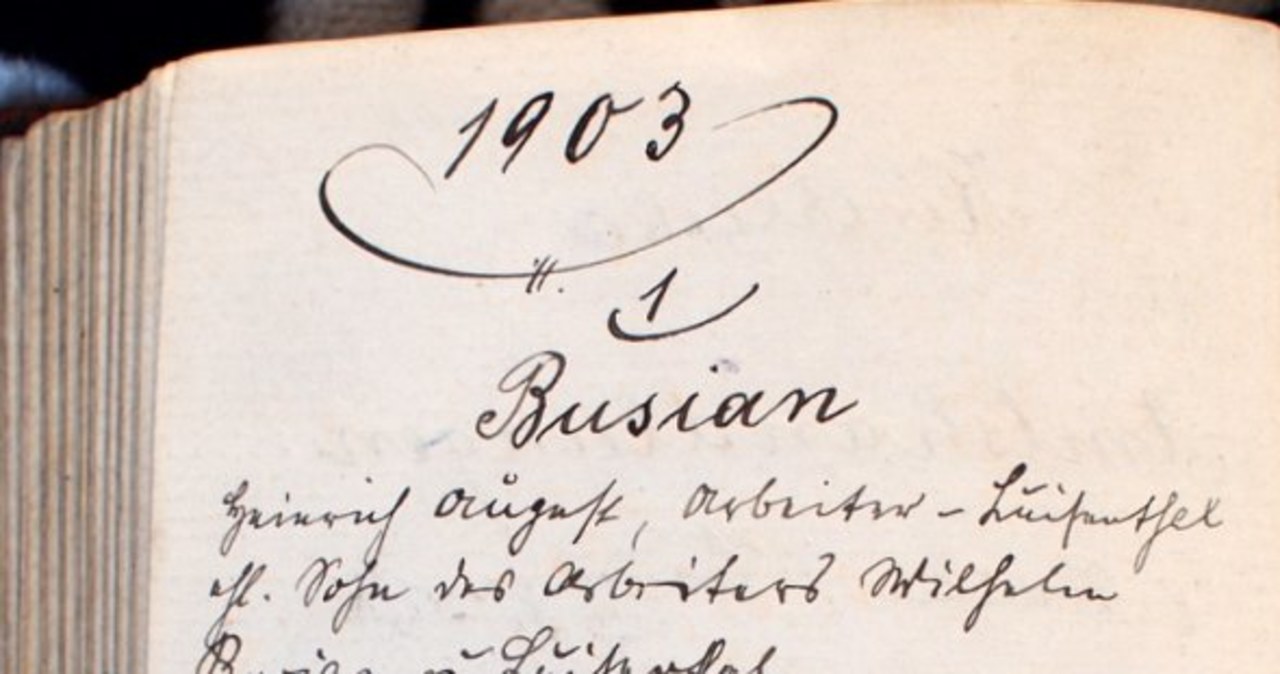 1903
1
Busian
Heinrich August, Arbeiter - Luisenthal
ehl. Sohn des Arbeiters Wilhelm
Busian u Luisenthal